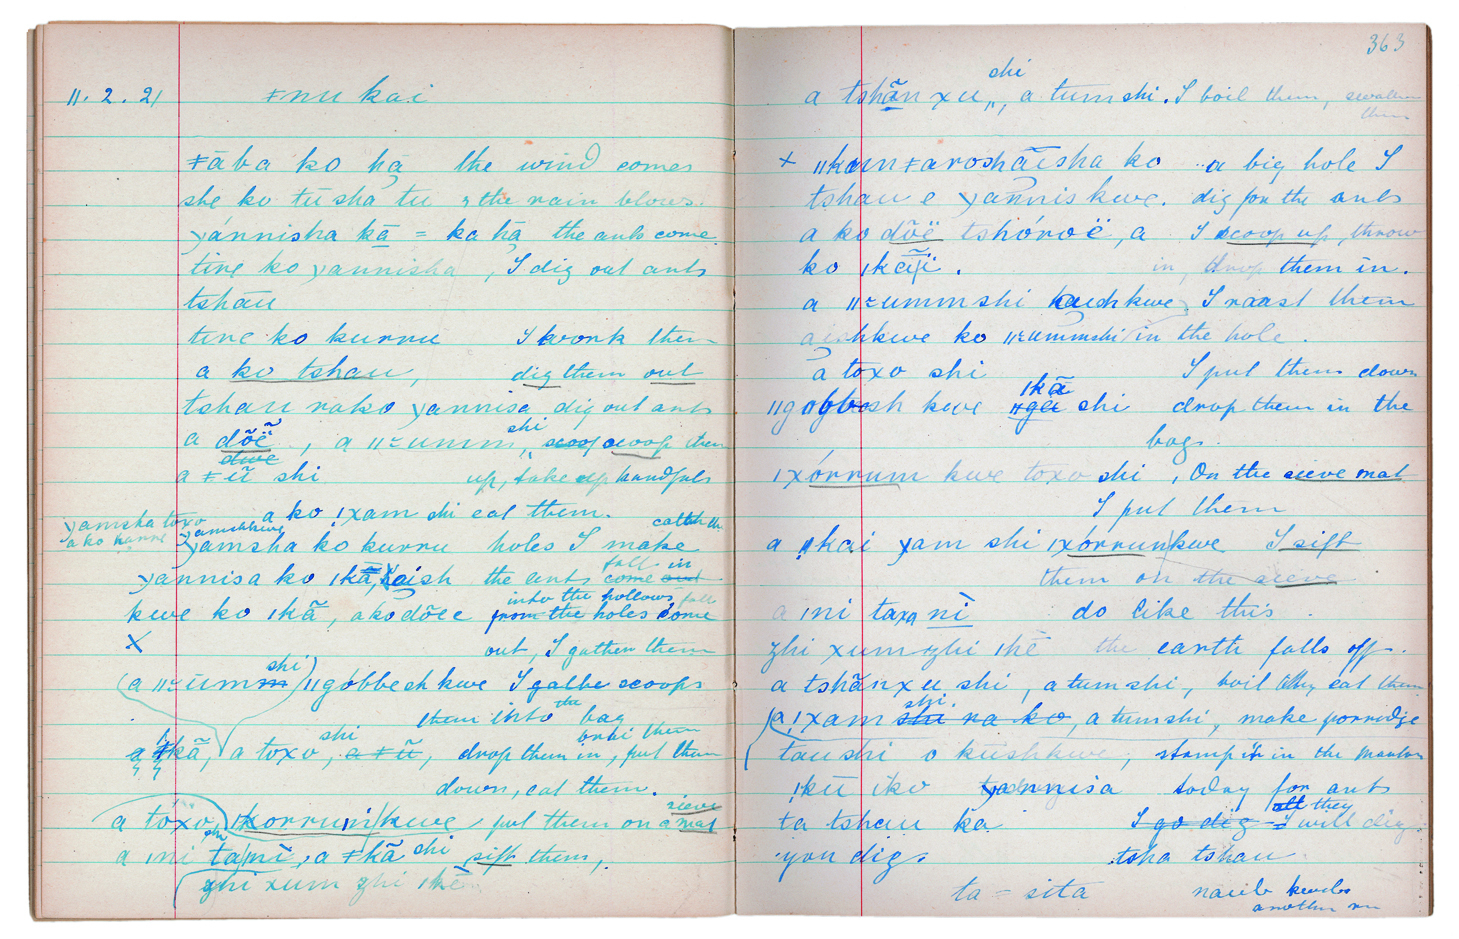 11. 2. 21 ǂnu kai
ǂāba ko hą̄ the wind comes
she ko tū sha tu, the rain blows.
yánnisha kā = ka hą̄ the ants come
tire ko yannisha, I dig out ants
tshāu
tire ko kurru I work them
a ko tshau, dig them out
tshau rako yannisa dig out ants
shi
a dõë̃, a ǁzumm,, scoop scoop them
dwe
a ǂũ shi up, take up handfuls
a ko !xam shi eat them.
yamsha toxo yamshkwe catch th
a ko hanne
yamsha ko kurru holes I make
fall in
yannisa ko ǀkā, kaish the ants come out
into the hollows fall
kwe ko ǀkã, ako dõëe from the holes come
X out, I gather them
shi
(a ǁzumm) ǁgóbbesh kwe I gathe scoops
the
them into bag
shi orbi them
a ǂkã, a toxo, a ǂũ, drop them in, put them
down, eat them.
sieve
a tóxo, ǀxorrun/kwe put them on a mat
shi
a ǀni ta/nì, a ǂkã shi sift them,
zhi xum zhi ǀkẽ
363
shi
a tshãn xu,,, a tum shi. I boil them, swallow
them
x ǁkamǂaroshāīsha ko a big hole I
tshau e yannis kwe. dig for the ants
a ko dõë tshóroë, a I scoop up, throw
ko ǀkãï. in, drop them in.
a ǁzumm shi kaishkwe, I roast them
aishkwe ko ǁzummshi in the hole.
a toxo shi I put them down
ǀkã
ǁgobbosh kwe ǁga shi drop them in the
bag.
ǀxórrum kwe toxo shi, On the sieve mat
I put them
a ǀkai yam shi ǀxórrun/kwe I sift
them on the sieve
a ǀni taxa nì do like this.
zhi xum zhi ǀkē the earth falls off.
a tshãnxu shi, a tumshi, boil they eat them
shi.
(a !xam shi na ko, a tumshi, make porridge
taushi o kushkwe, stamp it in the mortar
ǃkũ iko yannisa today for ants
all they
ta tshau ka I go dig I will dig
you dig. tsha tshau
ta = sita naub
another